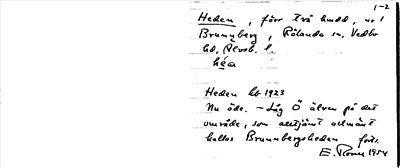 1-2
Heden, förr två hmd, nr 1
Brunnberg, Rölanda sn, Vedbo
hd, Älvsb. l.
hέan
Heden kb 1923
Nu öde. – Låg Ö älven på det
område, som alltjämt allmänt
kallas Brunnbergsheden förr.
E. 1954